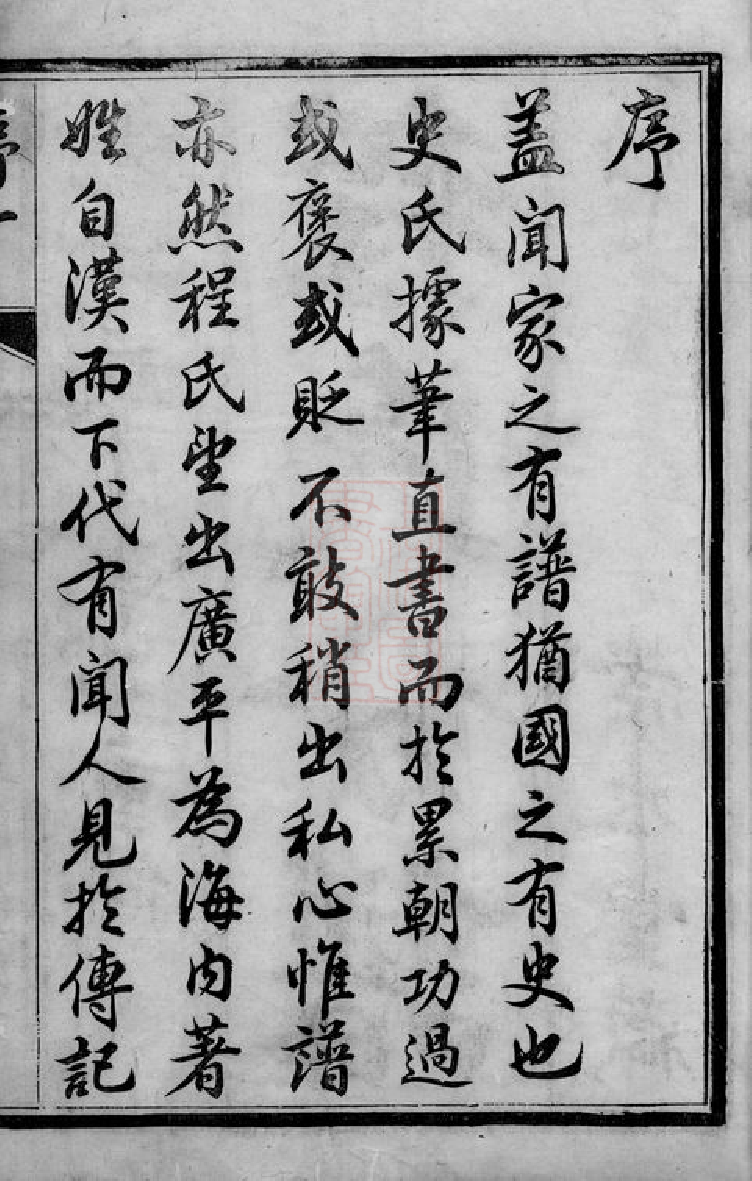 序
蓋聞家之有譜猶國之有史也
史氏據筆直書而於累朝功過
或褒或貶不敢稍出私心惟譜
亦然程氏望出廣平為海內著
姓自漢而下代有聞人見於傳記
序一